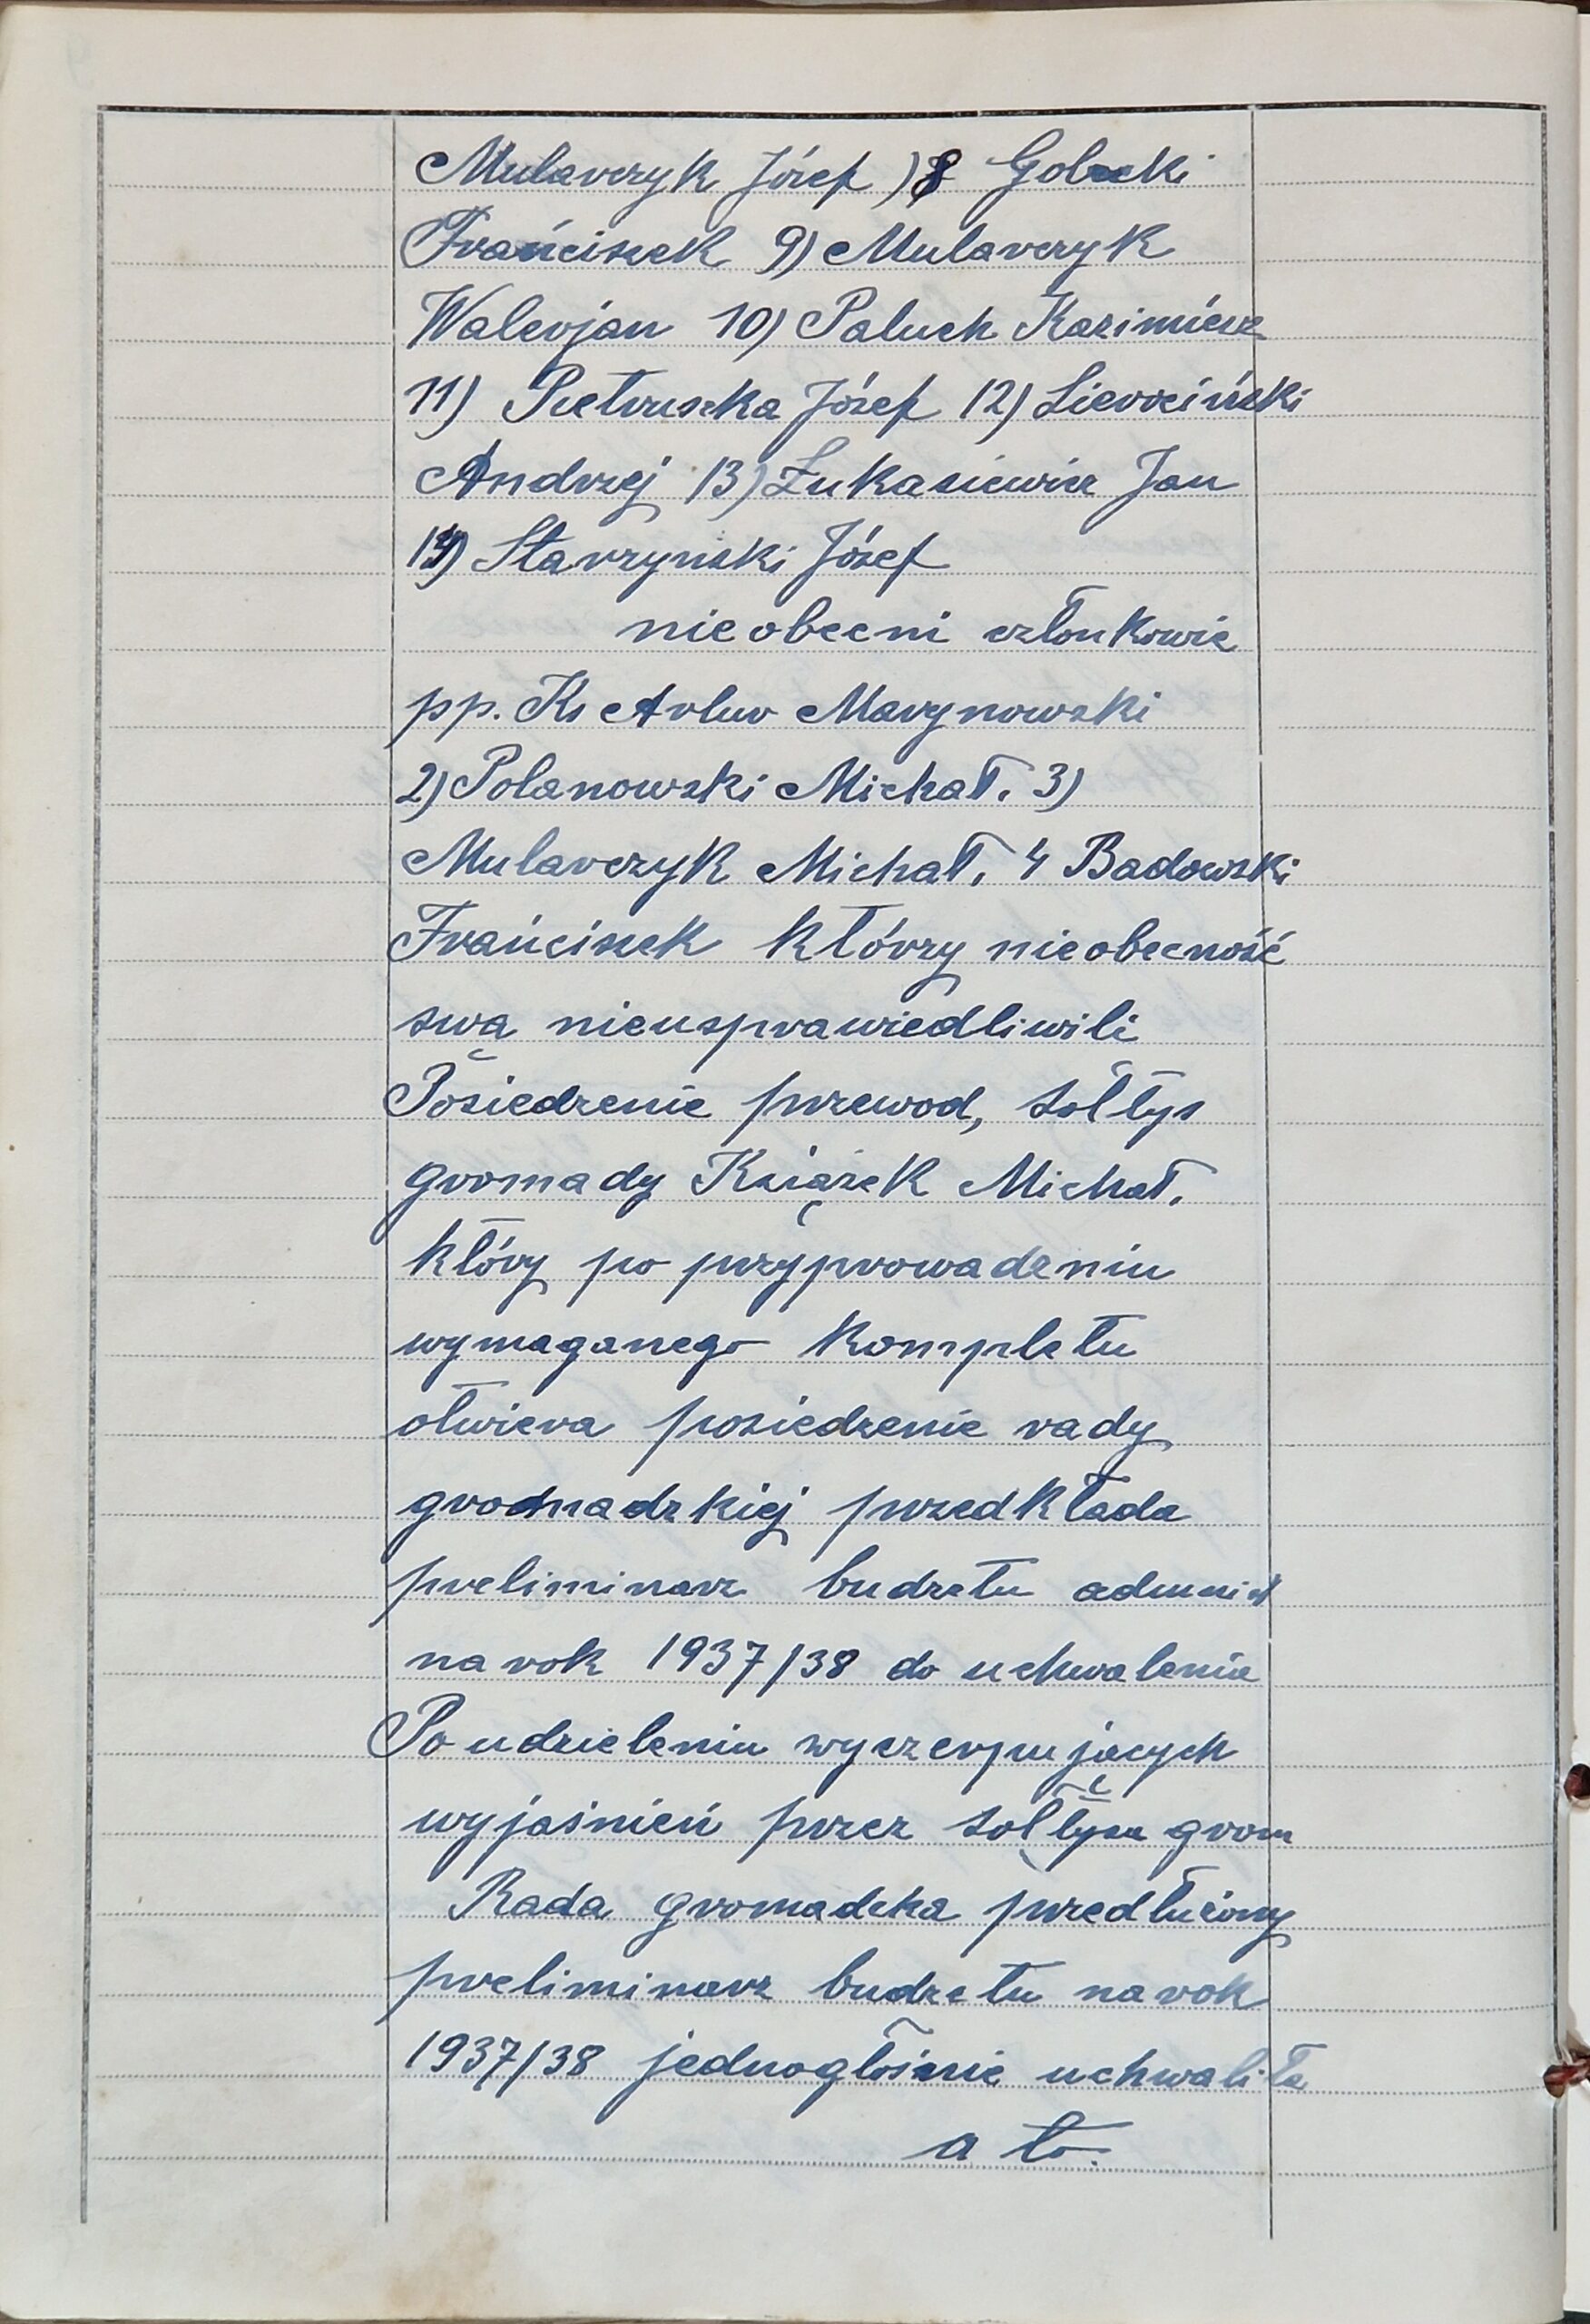 Mularczyk Józef )8 Golecki
Frańciszek 9) Mularczyk
Walerjan 10) Paluch Kazimierz
11) Pietruszka Józef 12) Sierociński
Andrzej 13) Łukasiewicz Jan
14) Starzyński Józef
nieobecni członkowie
pp. Ks Artur Marynowski
2) Polanowski Michał. 3)
Mularczyk Michał. 4 Badowski
Frańciszek którzy nieobecność
swą nieusprawiedliwili
Posiedzenie przewod, sołtys
gromady Książek Michał.
który po przyprowadzeniu
wymaganego kompletu
otwiera posiedzenie rady
gromadzkiej przedkłada
preliminarz budżetu admnist
na rok 1937/38 do uchwalenia
Po udzieleniu wyczerpujących
wyjaśnień przez sołtysa grom
Rada gromadzka przedłużony
preliminarz budżetu na rok
1937/38 jednogłośnie uchwaliła
a to.